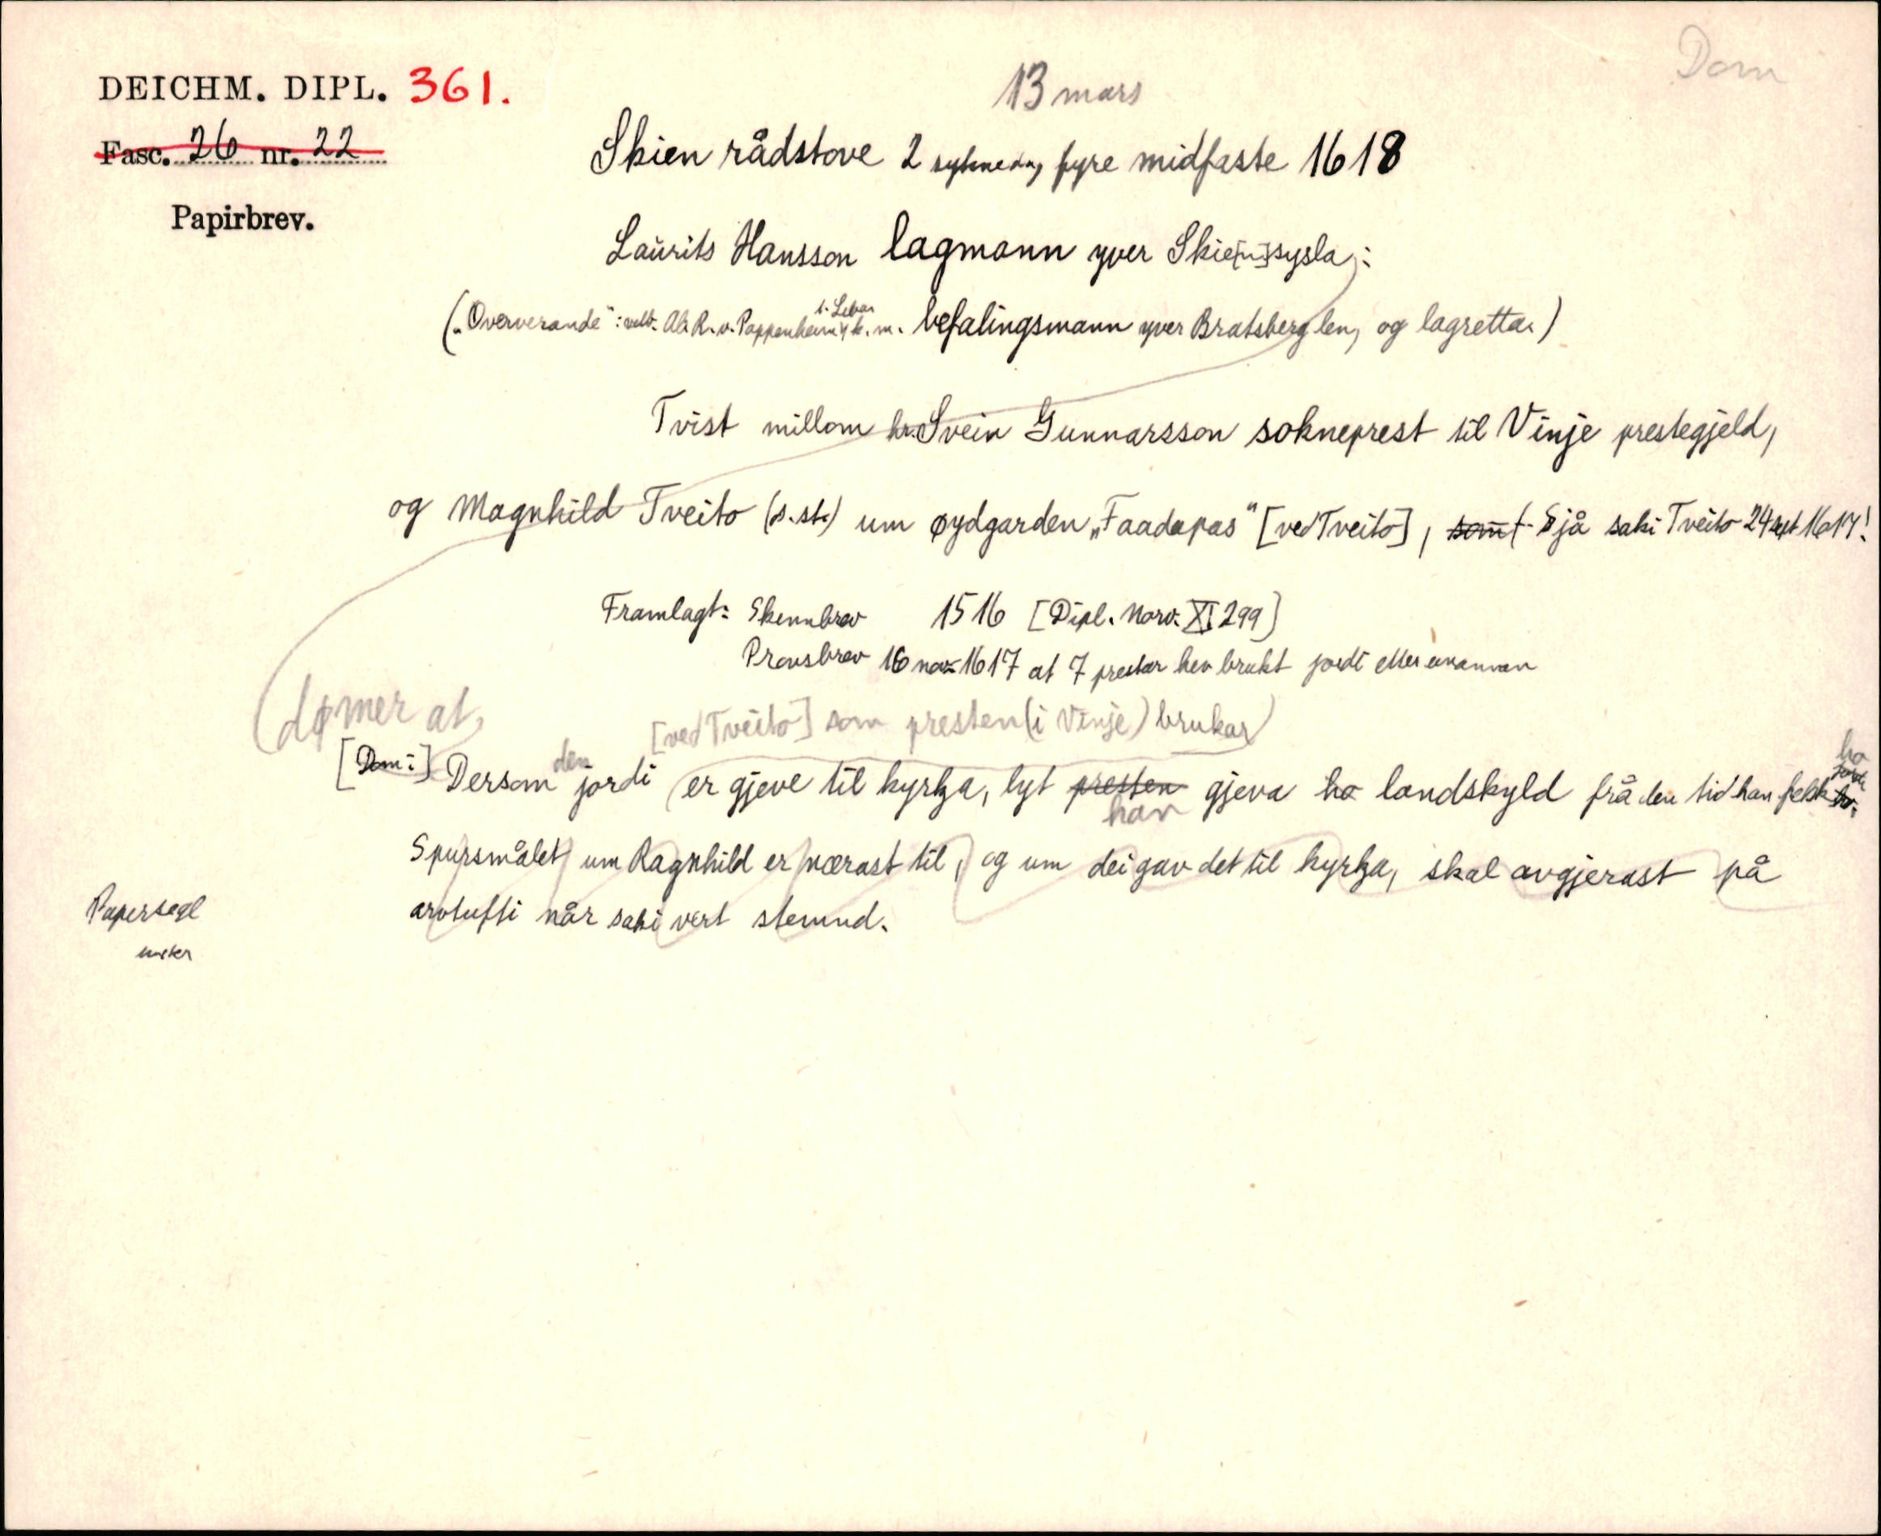 Dom
DEICHM. DIPL. 361.
13 mars
Fasc. 26 nr. 22
Skien rådstove 2 sykneda, fyre midfaste 1618
Papirbrev.
Laurits Hansson lagmann yver Skie[n]sysla:
("Ververande": velb. Al. R. v. Pappenheim k. m. befalingsmann yver Bratsberg len, og lagretta.)
Tvist millom hr. Svein Gunnarsson sokneprest til Vinje prestegjeld,
og Magnhild Tveito (s.st.) um øydgarden "Faadapas" [ved Tveito], som Sjå saki Tveito 24 sept 1617!
Framlagt: Skennbrev 1516 [Dipl. Norv. XI 299]
Provsbrev 16 nov 1617 at 7 prestar hev brukt jordi etter einannan
(dømer at,
[ved Tveito] som presten (i Vinje) brukar)
[Dom:] Dersom den jordi er gjeve til kyrkja, lyt presten han gjeva ho landskyld frå den tid han fekk ho
Spursmålet um Ragnhild er nærast til, og um dei gav det til kyrkja, skal avgjerast på
arvtufti når saki vert stemnd.
Papersegl
under